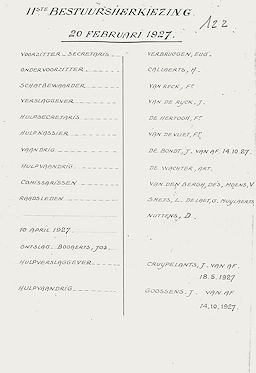 11STE BESTUURSHERKIEZING.
122
20 FEBRUARI 1927.
VOORZITTER - SECRETARIS VERBRUGGEN, EUG.
ONDERVOORZITTER CALLAERTS, A.
SCHATBEWAARDER VAN REYCK, Fr.
VERSLAGGEVER VAN DE RIJCK, J.
HULPSECRETARIS DE HERTOGH, Fr.
HULPKASSIER VAN DEVLIET, Fr.
VAANDRIG DE BONDT, J. VAN AF. 14.10.27.
HULPVAANDRIG DE WACHTER, ART.
COMISSARISSEN VAN DEN BERGH, DES, MOENS, V
RAADSLEDEN SMETS, L. DELAET, G. MUYLAERTS
NUTTENS, D.
10 APRIL 1927
ONTSLAG - BOGAERTS, JOS.
HULPVERSLAGGEVER CRUYPELANTS, J. VAN AF.
18.5.1927.
HULPVAANDRIG GOOSSENS. J. VAN AF
14.10.1927.